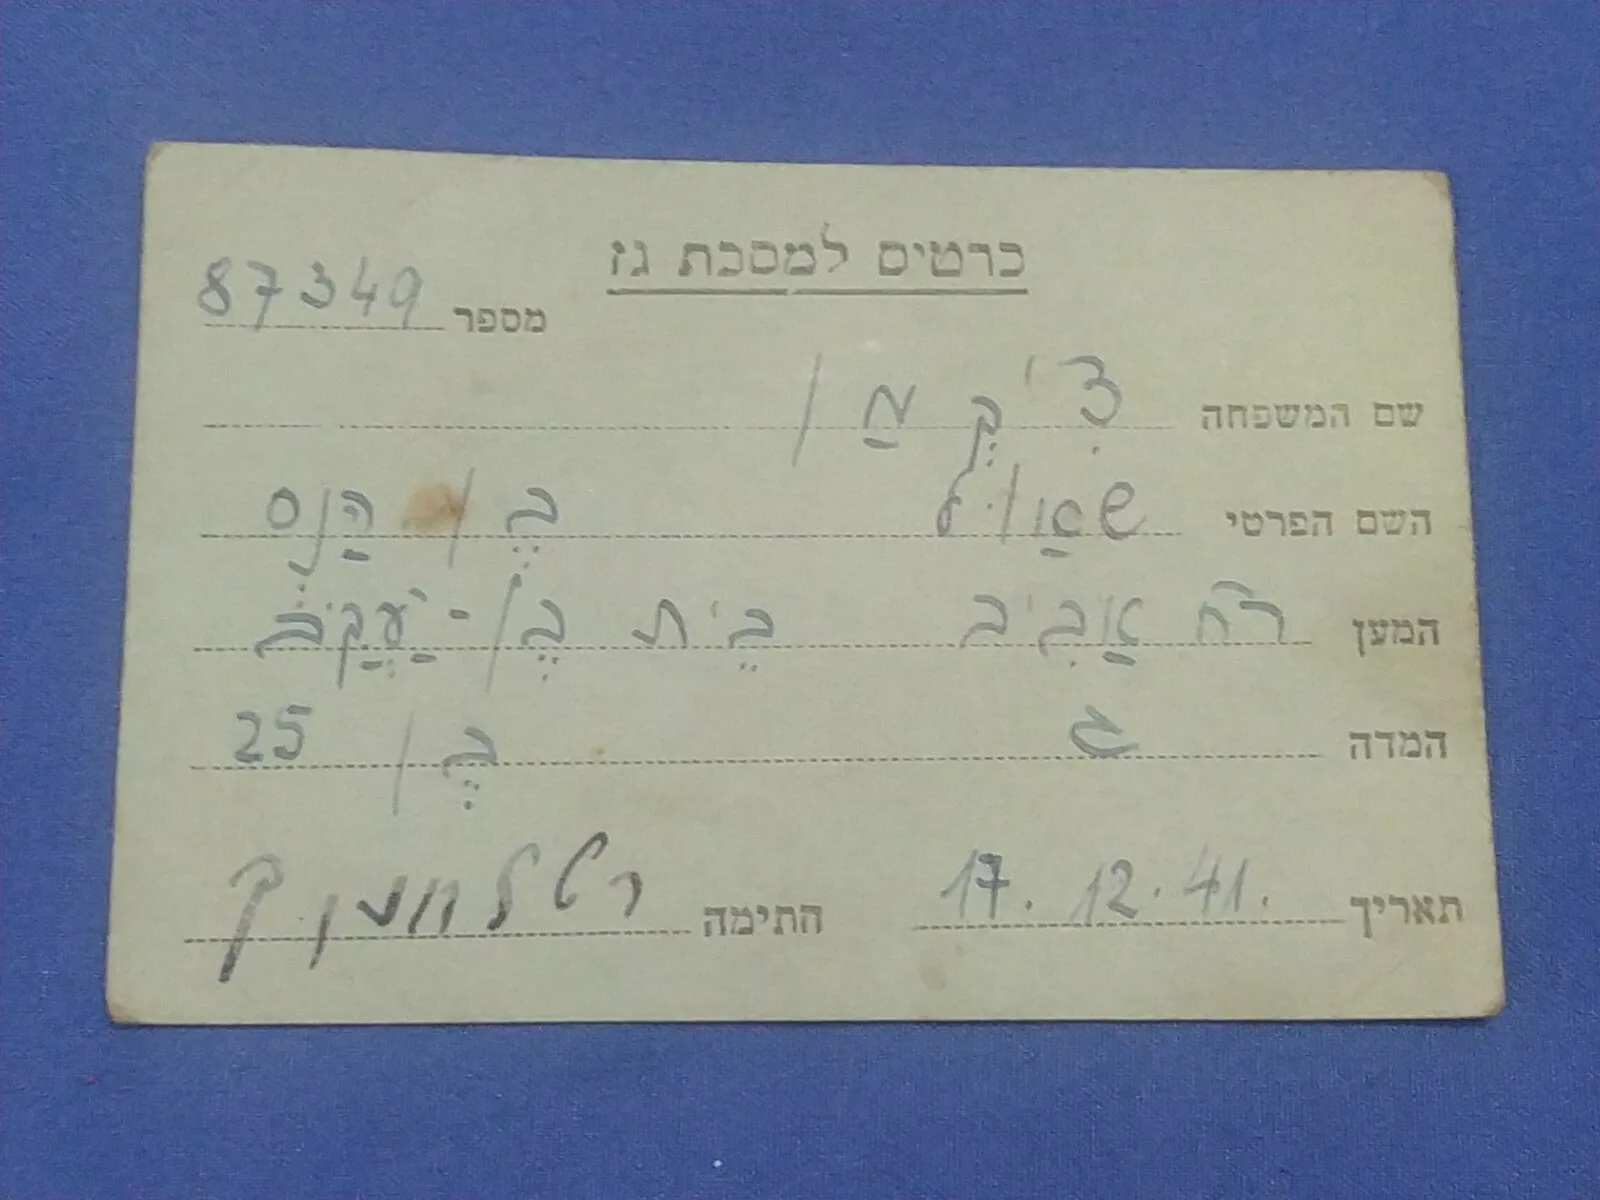 כרטיס למסכת גז
מספר 87349
שם המשפחה צִ'קֶמַן
השם הפרטי שאַוּל בֶּן הַנְס
המען רח אַבִיב בֵּית בֶּן-יַעֲקֹב
המדה בֶּן 25
תאריך 17.12.41. התימה